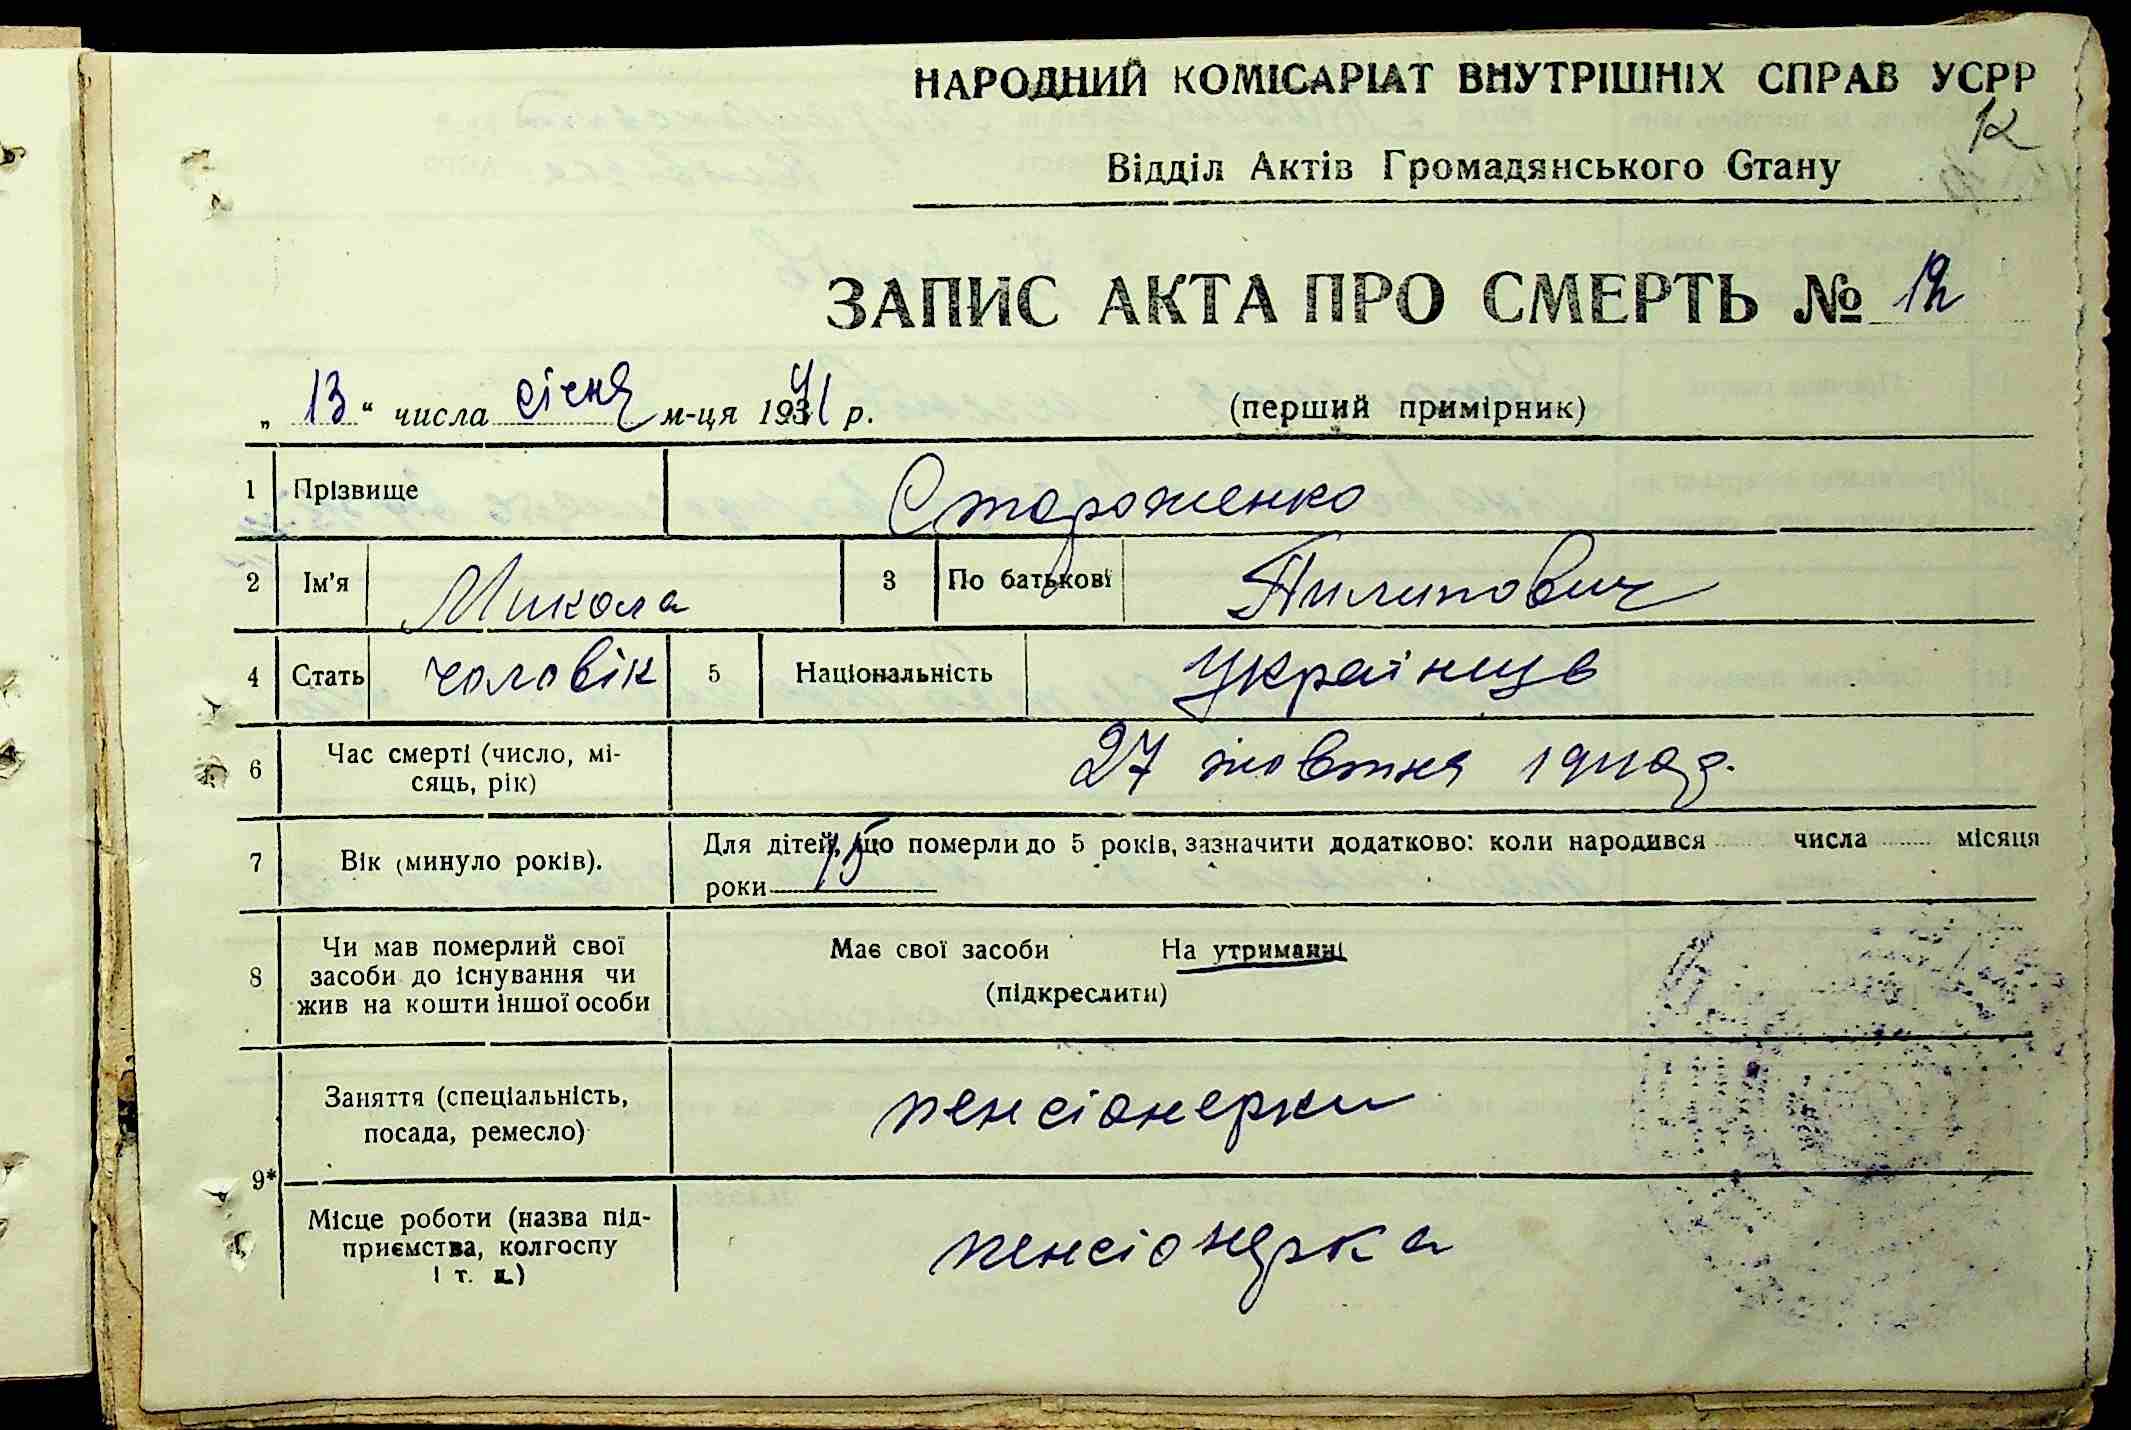 НАРОДНИЙ КОМІСАРІАТ ВНУТРІШНІХ СПРАВ УСРР
Відділ Актів Громадянського Стану
ЗАПИС АКТА ПРО СМЕРТЬ № 12
„ 13 “ числа січня м-ця 1941 р. (перший примірник)
1 Прізвище Стороженко
2 Ім'я Микола 3 По батькові Пилипович
4 Стать чоловік 5 Національність Українець
6 Час смерті (число, мі-
сяць, рік) 27 жовтня 1940 р.
7 Вік (минуло років). Для дітей, що померли до 5 років, зазначити додатково: коли народився числа місяця
роки 75
8 Чи мав померлий свої
засоби до існування чи
жив на кошти іншої особи
Має свої засоби На утриманні
(підкреслити)
9* Заняття (спеціальність,
посада, ремесло) пенсіонерки
Місце роботи (назва під-
приємства, колгоспу
і т. д.) пенсіонерка